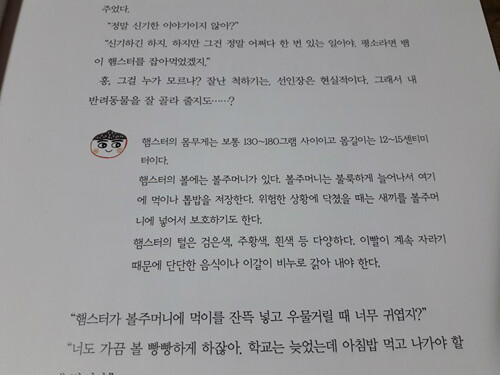 주었다.
"정말 신기한 이야기이지 않아?"
"신기하긴 하지. 하지만 그건 정말 어쩌다 한 번 있는 일이야. 평소라면 뱀
이 햄스터를 잡아먹었겠지."
흥, 그걸 누가 모르나? 잘난 척하기는. 선인장은 현실적이다. 그래서 내
반려동물을 잘 골라 줄지도……?
햄스터의 몸무게는 보통 130~180그램 사이이고 몸길이는 12~15센티미
터이다.
햄스터의 볼에는 볼주머니가 있다. 볼주머니는 불룩하게 늘어나서 여기
에 먹이나 톱밥을 저장한다. 위험한 상황에 닥쳤을 때는 새끼를 볼주머
니에 넣어서 보호하기도 한다.
햄스터의 털은 검은색, 주황색, 흰색 등 다양하다. 이빨이 계속 자라기
때문에 단단한 음식이나 이갈이 비누로 갉아 내야 한다.
"햄스터가 볼주머니에 먹이를 잔뜩 넣고 우물거릴 때 너무 귀엽지?"
"너도 가끔 볼 빵빵하게 하잖아. 학교는 늦었는데 아침밥 먹고 나가야 할